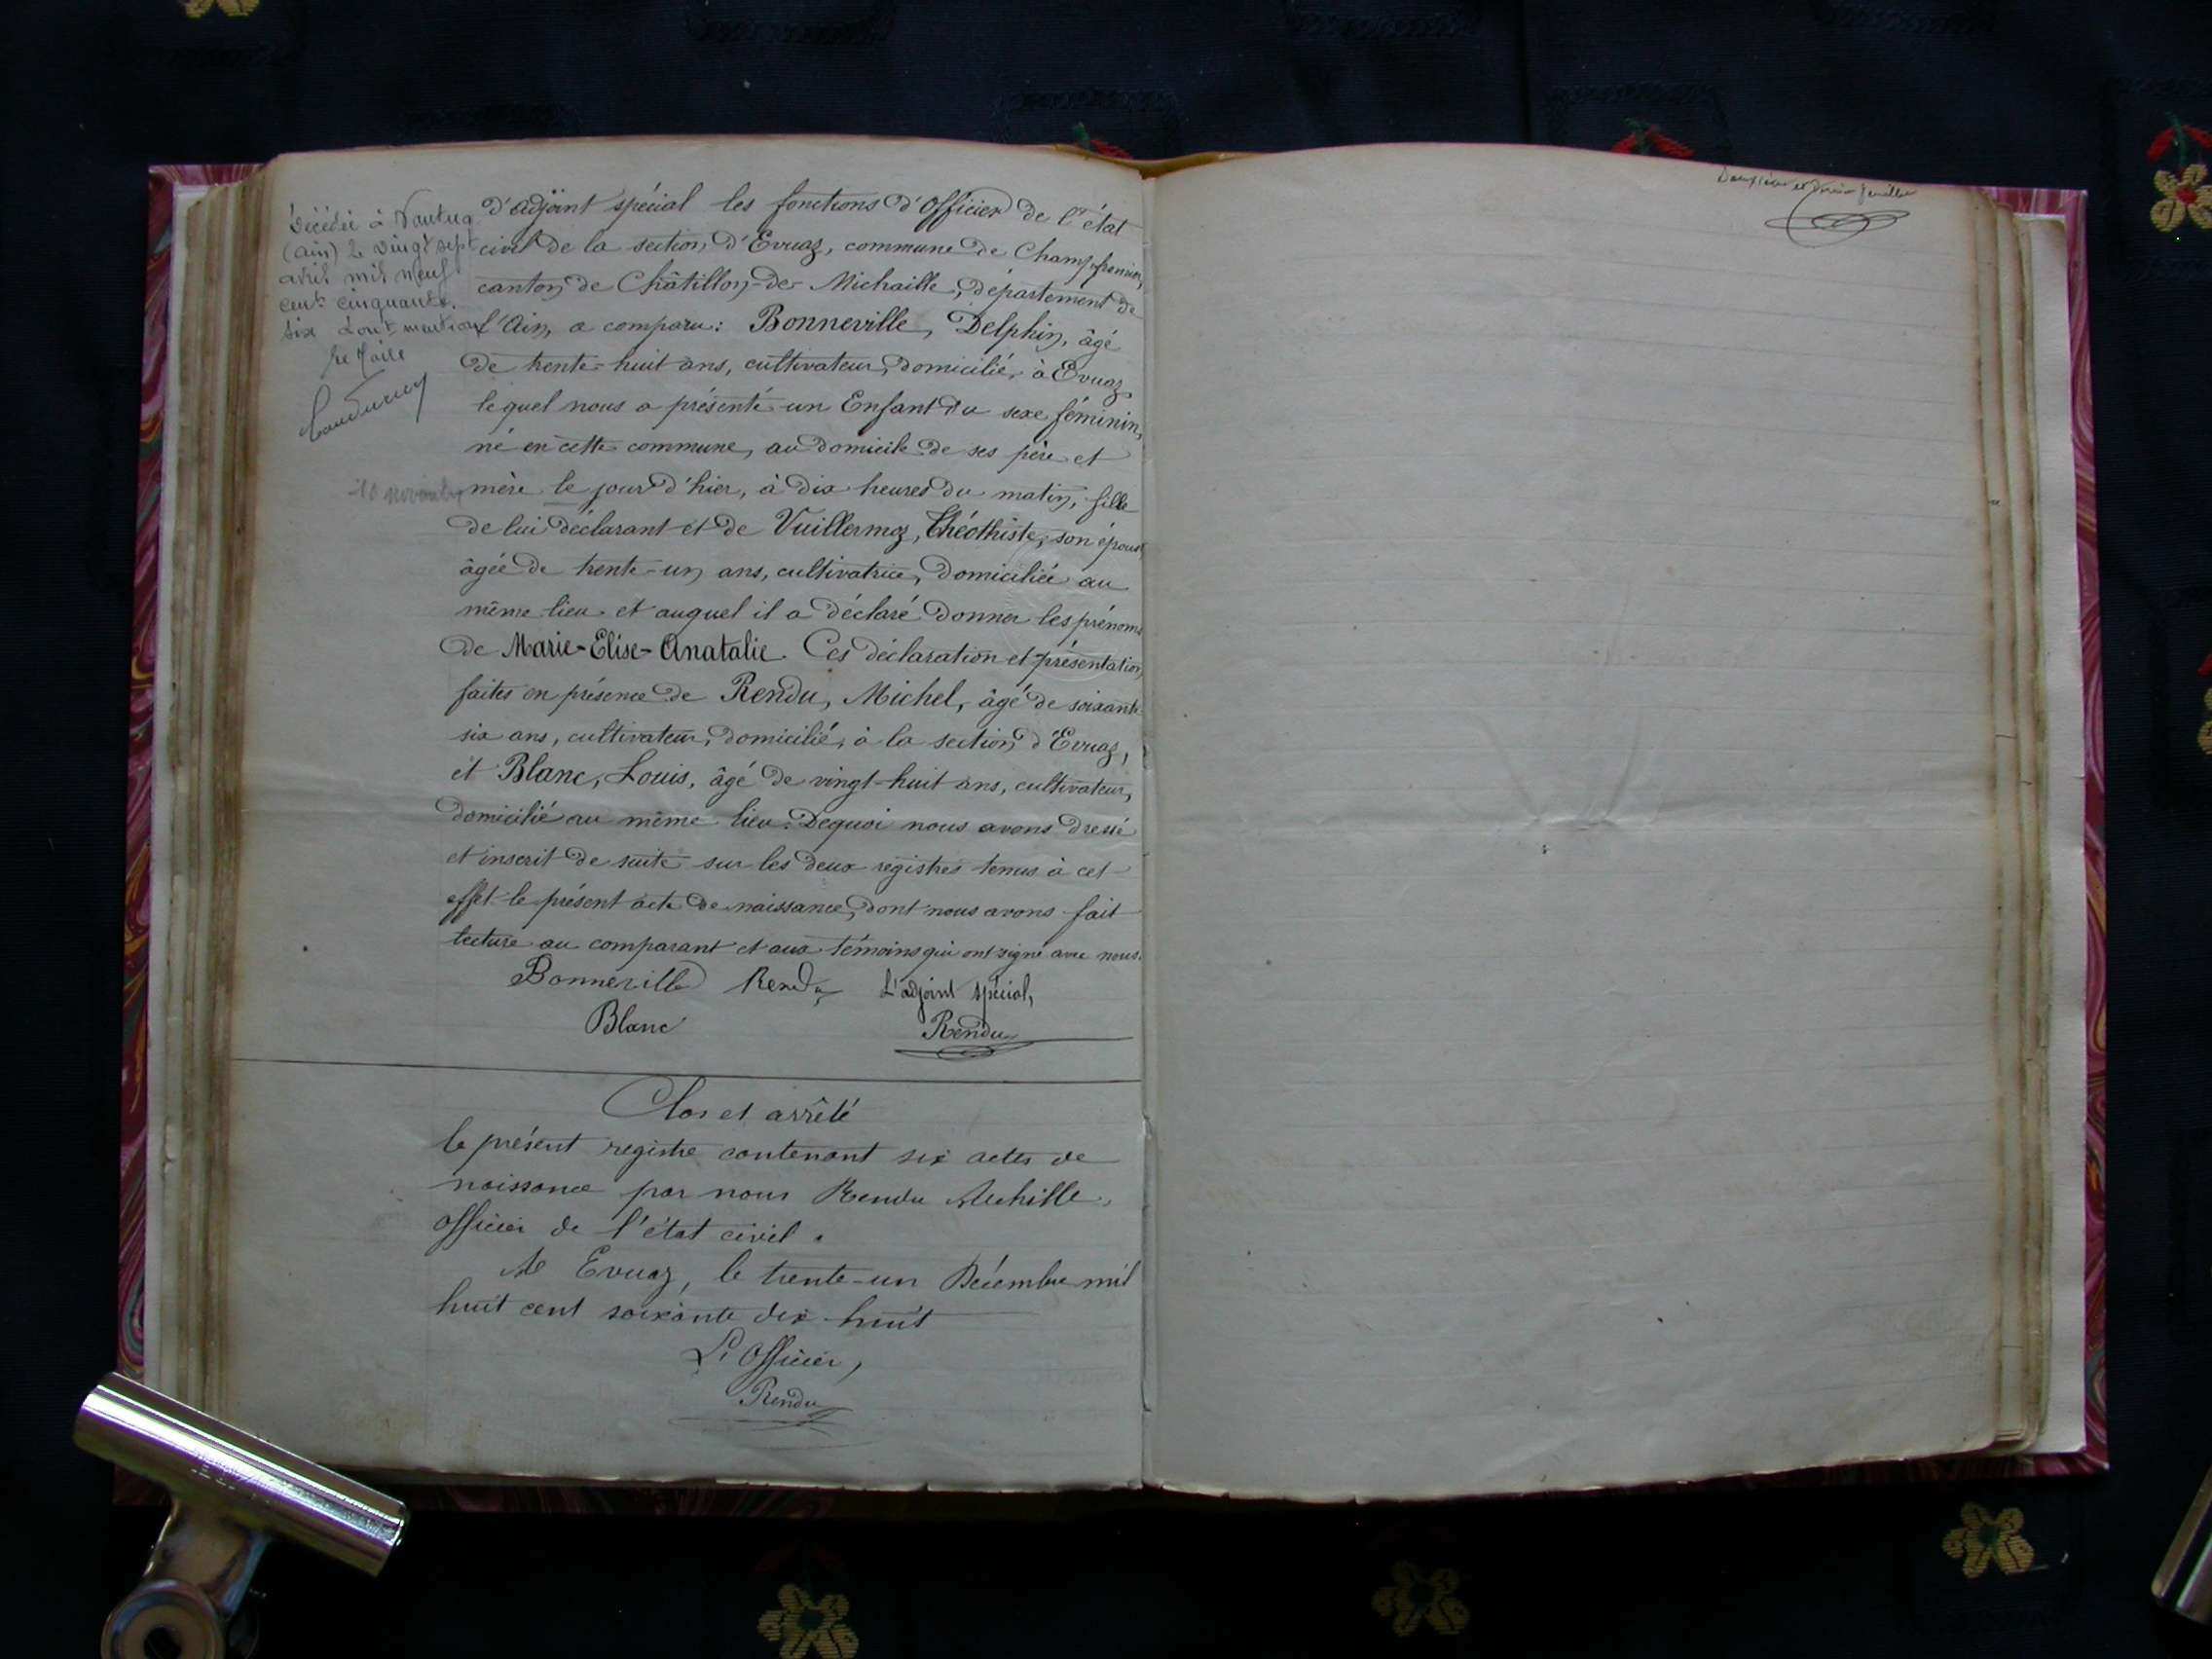 décédée à Nantua
(Ain) le vingt sept
avril mil neuf
cent cinquante
six dont mention
le Maire
10 novembre
d'adjoint spécial les fonctions d'Officier de l'état
civil de la section d'Evuaz, commune de Champfromier,
canton de Châtillon-de-Michaille, département de
l'Ain, a comparu: Bonneville, Delphin, âgé
de trente-huit ans, cultivateur, domicilié à Evuaz
lequel nous a présenté un Enfant du sexe féminin,
né en cette commune, au domicile de ses père et
mère le jour d'hier, à dix heures du matin, fille
de lui déclarant et de Vuillermoz, Théothiste, son épouse
âgée de trente-un ans, cultivatrice, domiciliée au
même lieu et auquel il a déclaré donner les prénoms
de Marie-Elise-Anatalie. Ces déclaration et présentation
faites en présence de Rendu, Michel, âgé de soixante-
six ans, cultivateur, domicilié, à la section d'Evuaz,
et Blanc, Louis, âgé de vingt-huit ans, cultivateur,
domicilié au même lieu. Dequoi nous avons dressé
et inscrit de suite sur les deux registres tenus à cet
effet le présent acte de naissance, dont nous avons fait
lecture au comparant et aux témoins qui ont signé avec nous.
Bonneville Rendu L'adjoint spécial,
Blanc Rendu
Clos et arrêté
le présent registre contenant six actes de
naissance par nous Rendu Achille,
officier de l'état civil.
A Evuaz, le trente-un Décembre mil
huit cent soixante dix-huit
L'Officier,
Rendu
Deuxième et dernier feuillet